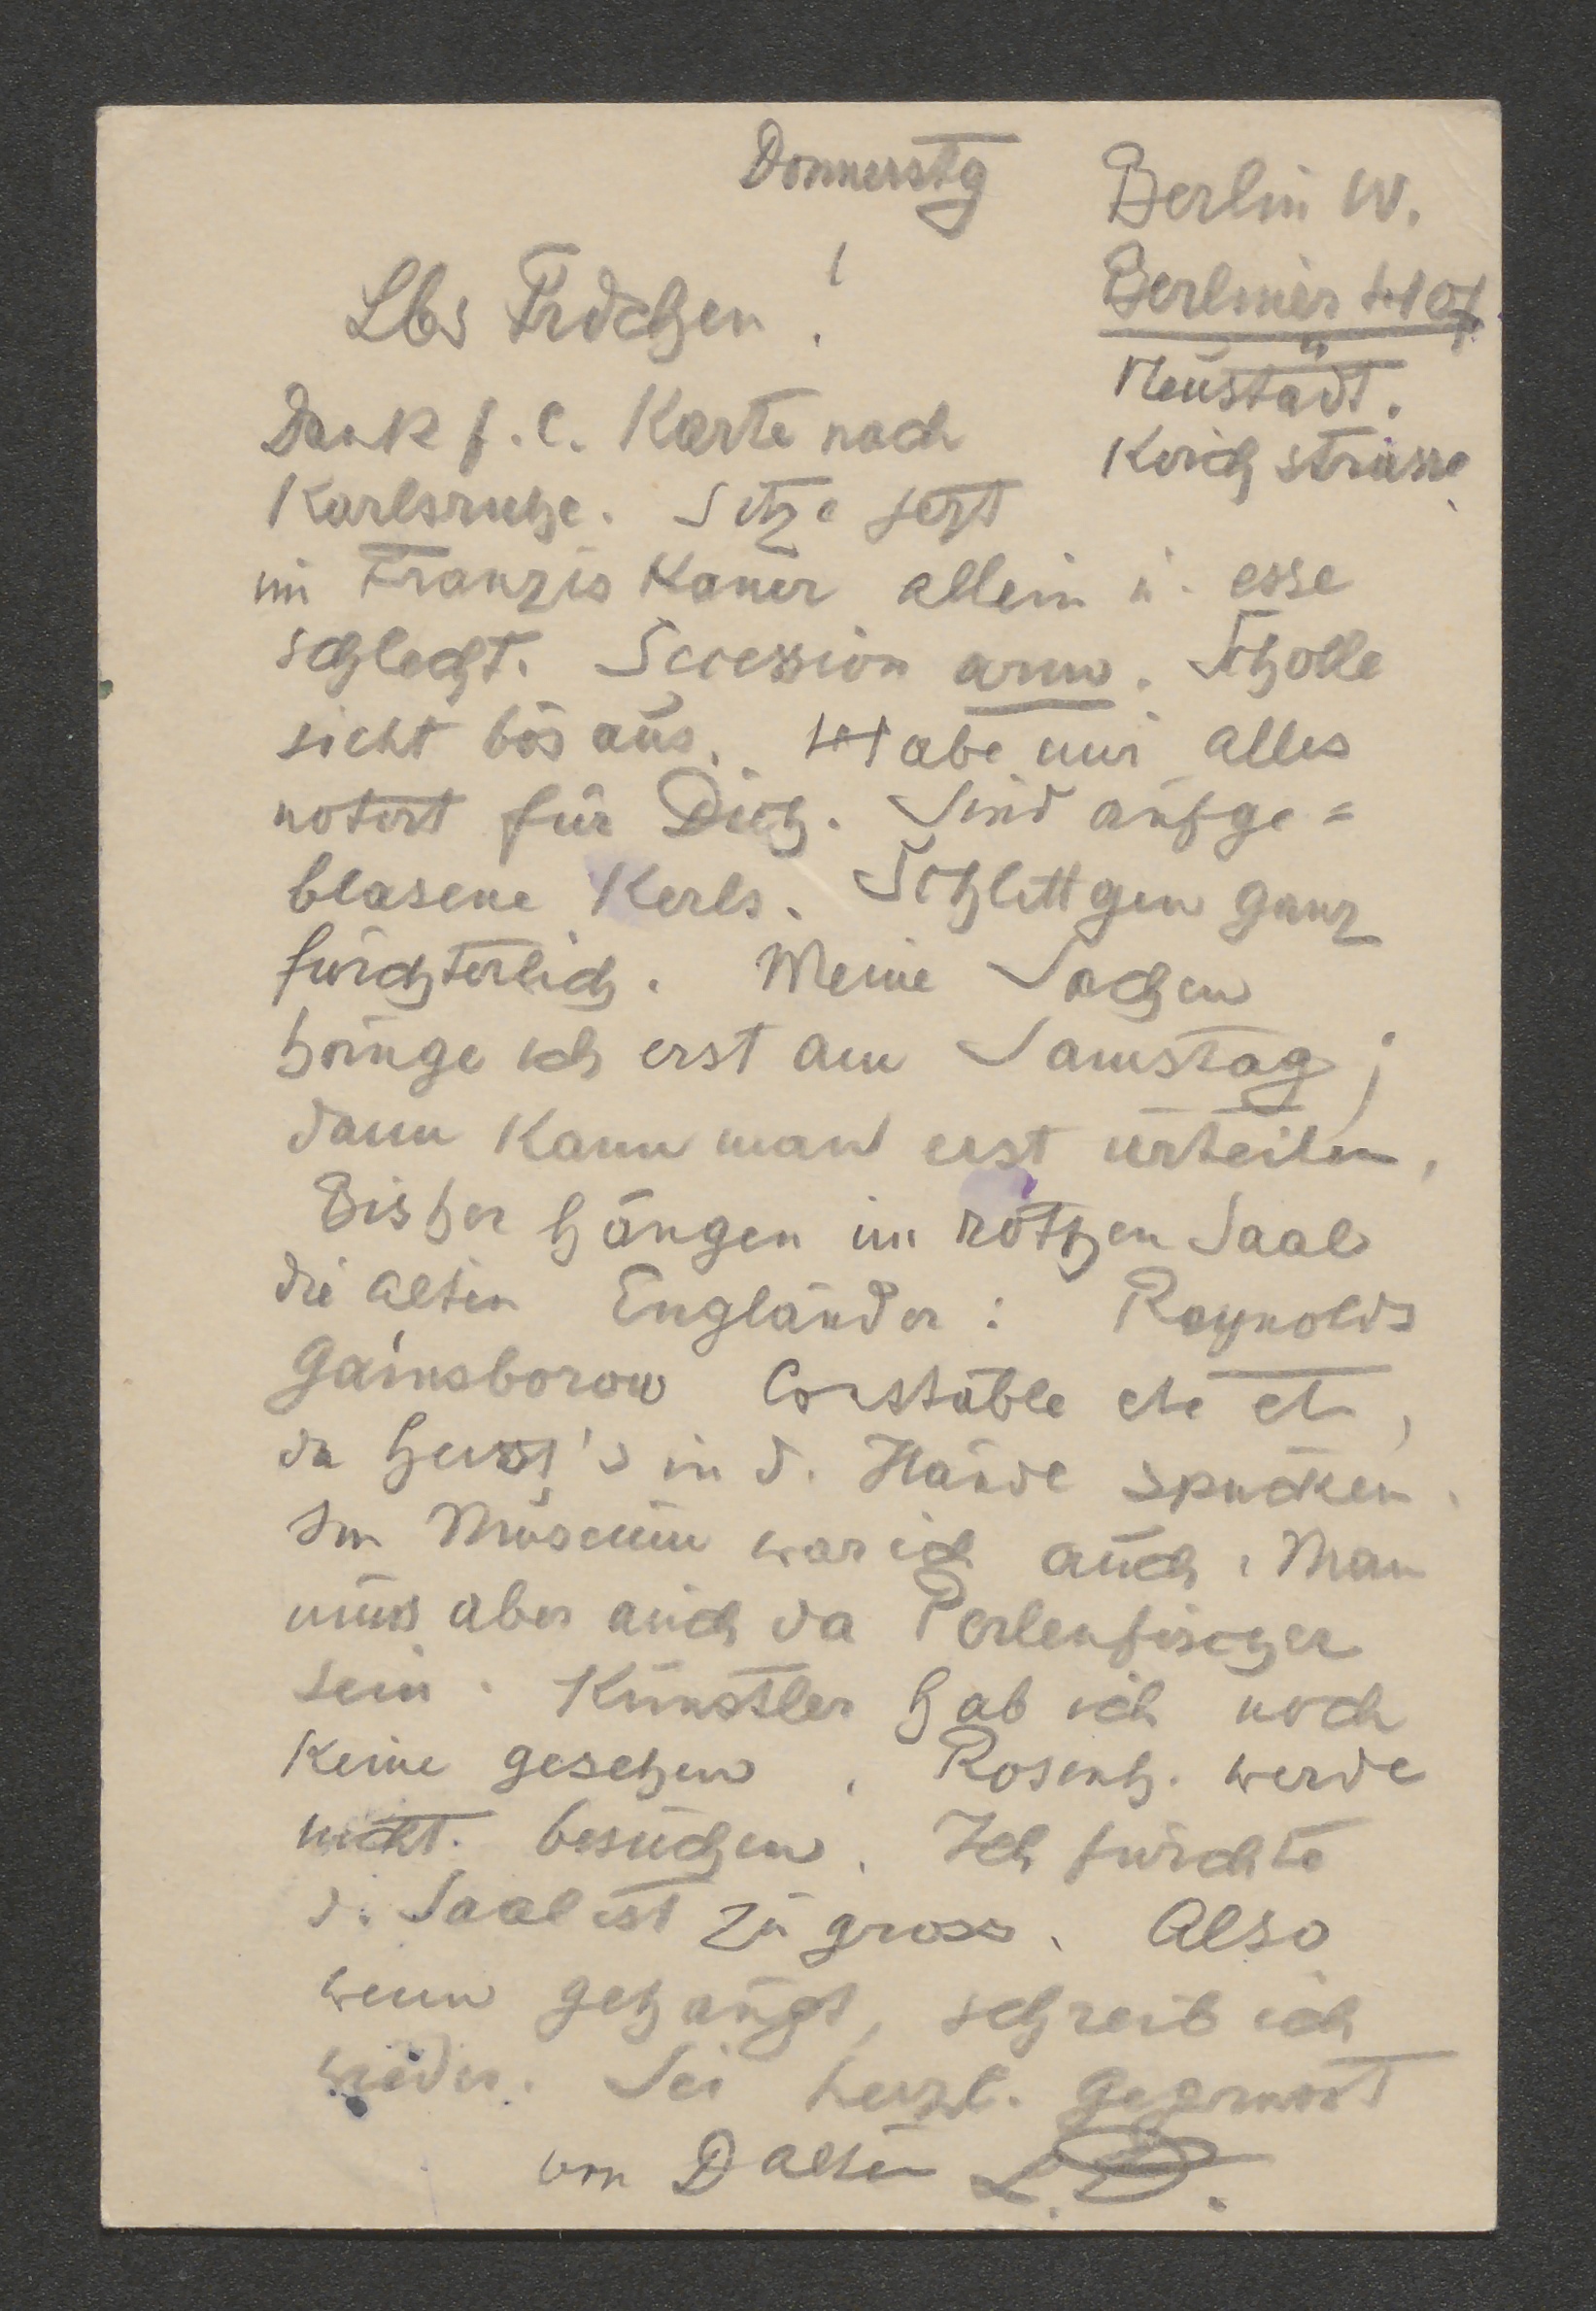 Donnerstg
Berlin W.
Berliner Hof
Neustädt.
Kirchstrasse
Lbs Frdchen!
Dank f. C. Karte nach
Karlsruhe. Sitze jezt
im Franziskaner allein u. esse
schlecht. Secession arm. Scholle
sieht bös aus. Habe mir alles
notirt für Dich. Sind aufge=
blasene Kerls. Schlittgen ganz
fürchterlich. Meine Sachen
hänge ich erst am Samstag;
dann kann man erst urteilen.
Bisher hängen im rothen Saal
die alten Engländer: Raynolds
Gainsborow Constable etc etc,
da heisst's in d. Hände spucken.
Im Museum war ich auch. Man
muss aber auch da Perlenfischer
sein. Künstler hab ich noch
keine gesehen. Rosenh. werde
nicht besuchen. Ich fürchte
d. Saal ist zu gross. Also
wenn gehängt, schreib ich
wieder. Sei herzl. gegrüsst
von D alten L. D.